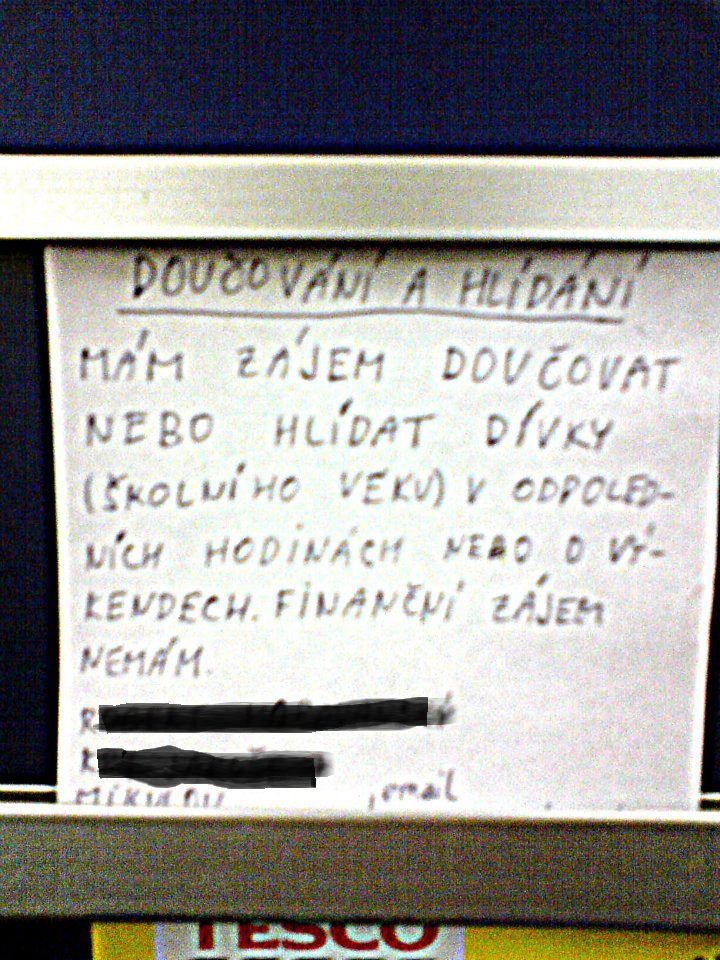 DOUČOVÁNÍ A HLÍDÁNÍ
MÁM ZÁJEM DOUČOVAT
NEBO HLÍDAT DÍVKY
(ŠKOLNÍHO VĚKU) V ODPOLED-
NÍCH HODINÁCH NEBO O VÝ-
KENDECH. FINANČNÍ ZÁJEM
NEMÁM.
, email
TESCO